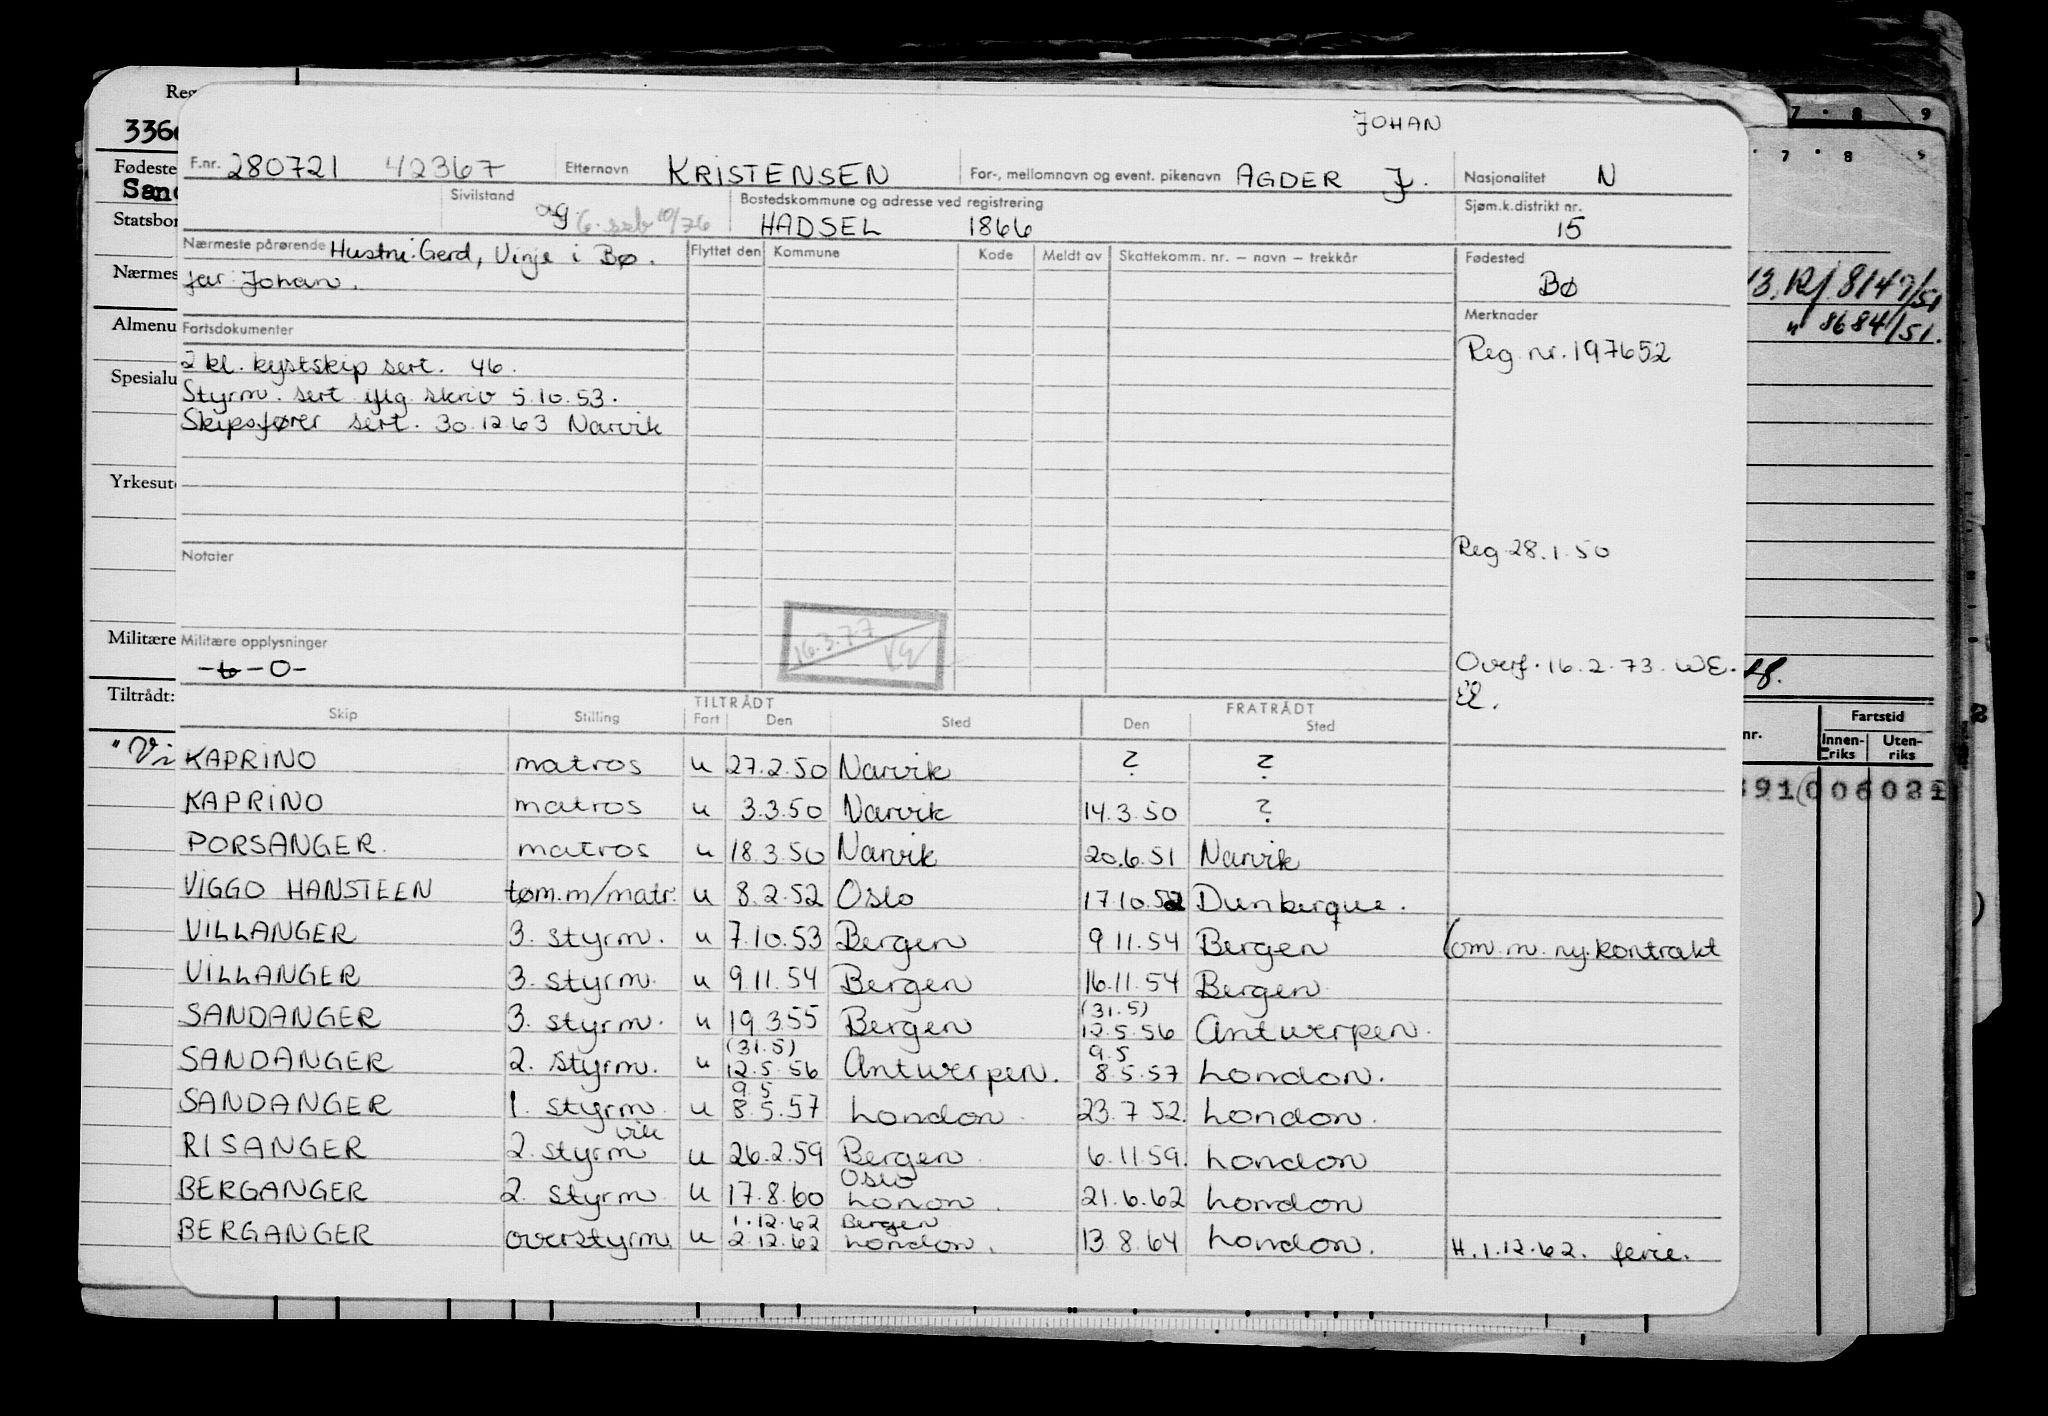 JOHAN
F.nr. 280721 42367 Etternavn KRISTENSEN For-, mellomnavn og event. pikenavn AGDER J. Nasjonalitet N
Sivilstand ag 10/76 Bostedskommune og adresse ved registrering HADSEL 1866 Sjøm.k.distrikt nr. 15
Nærmeste pårørende Hustru: Gerd, Vinje i Bø. Flyttet den Kommune Kode Meldt av Skattekomm. nr. – navn – trekkår Fødested Bø
far: Johan.
Fartsdokumenter
Merknader
2 kl. kystskip sert. 46.
Reg. nr. 197652
Styrm. sert iflg skriv 5.10.53.
Skipsfører sert. 30.12.63 Narvik
Notater
Reg 28.1.50
16.3.77
Militære opplysninger
-0-
Overf. 16.2.73. WE.
Skip Stilling TILTRÅDT Fart Den Sted FRATRÅDT Den Sted
KAPRINO matros u 27.2.50 Narvik ? ?
KAPRINO matros u 3.3.50 Narvik 14.3.50 ?
PORSANGER. matros u 18.3.50 Narvik 20.6.51 Narvik
VIGGO HANSTEEN tøm.m/matr. u 8.2.52 Oslo 17.10.52 Dunkerque.
VILLANGER 3. styrm. u 7.10.53 Bergen 9.11.54 Bergen (om.m. ny.kontrakt
VILLANGER 3. styrm. u 9.11.54 Bergen 16.11.54 Bergen
SANDANGER 3. styrm. u 19.3.55 Bergen (31.5) 12.5.56 Antwerpen.
SANDANGER 2. styrm. u (31.5) 12.5.56 Antwerpen. 9.5 8.5.57 London.
SANDANGER 1. styrm. u 9.5 8.5.57 London. 23.7.52. London.
RISANGER 2. styrm vik u 26.2.59 Bergen. 6.11.59. London
BERGANGER 2. styrm. u 17.8.60 Oslo Lonon. 21.6.62 London
BERGANGER overstyrm. u 1.12.62 2.12.62 Bergen London. 13.8.64 London. H.1.12.62. ferie.
3366
Fødeste
Sand
Statsbor
Nærmes
Almenu
Spesialu
Yrkesut
Militære
Tiltrådt:
"Vi
7 8 9
7 8
13, R/ 8147/51
" 8684/51.
nr. Fartstid
Innenriks Utenriks